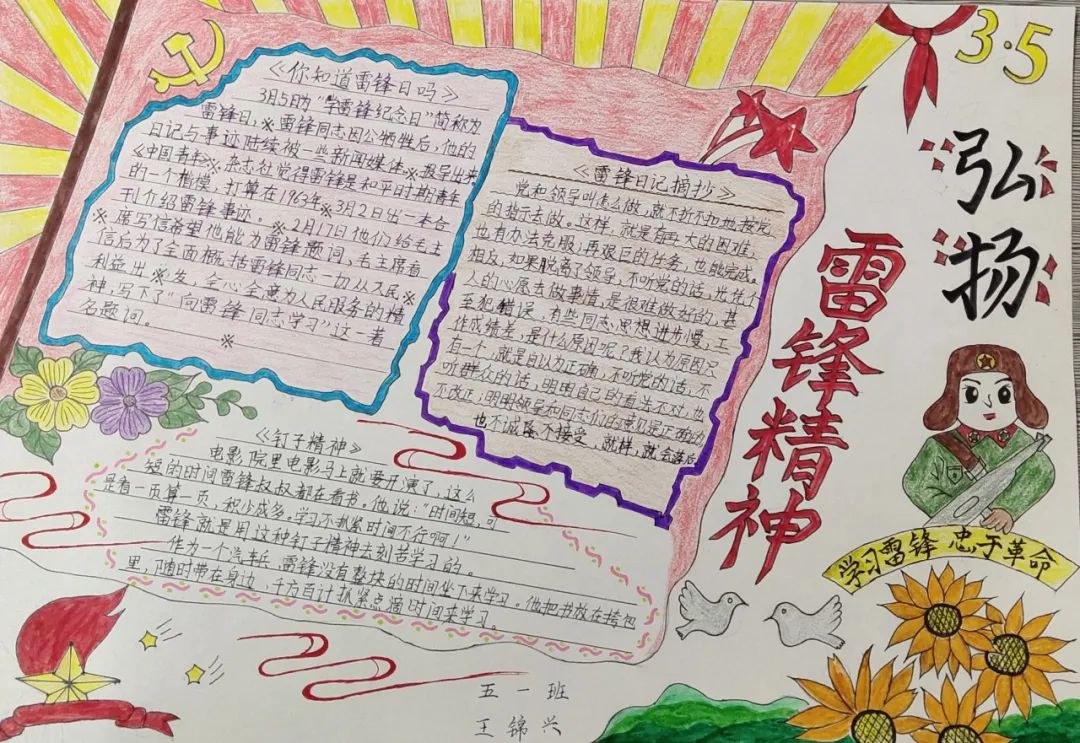 3·5
弘扬
雷锋精神
《你知道雷锋日吗》
3月5日为“学雷锋纪念日”简称为
雷锋日，※雷锋同志因公牺牲后，他的
日记与事迹陆续被一些新闻媒体※报导出来
《中国青年》※杂志社觉得雷锋是和平时期青年
的一个楷模，打算在1963年※3月2日出一本合
刊介绍雷锋事迹。※2月17日他们给毛主
席写信希望他能为雷锋题词，毛主席看
信后为了全面概括雷锋同志一切从人民※
利益出※发，全心全意为人民服务的精
神，写下了“向雷锋同志学习”这一著
名题词。※
《雷锋日记摘抄》
党和领导叫怎么做，就不折不扣地按党
的指示去做。这样，就是有再大的困难，
也有办法克服；再艰巨的任务，也能完成。
相反，如果脱离了领导，不听党的话，光凭个
人的心愿去做事情，是很难做好的，甚
至犯错误。有些同志思想进步慢，工
作成绩差，是什么原因呢？我认为原因只
有一个，就是自认为正确，不听党的话，不
听群众的话，明明自己的看法不对，也
不改正；明明领导和同志们的意见是正确的
也不诚恳接受，就样，就会落后
《钉子精神》
电影院里电影马上就要开演了，这么
短的时间雷锋叔叔都在看书。他说：“时间短，可
是看一页算一页，积少成多。学习不抓紧时间不行啊！”
雷锋就是用这种钉子精神去刻苦学习的。
作为一个汽车兵，雷锋没有整块的时间坐下来学习。他把书放在挎包
里，随时带在身边，千方百计抓紧点滴时间来学习。
学习雷锋 忠于革命
五一班
王锦兴